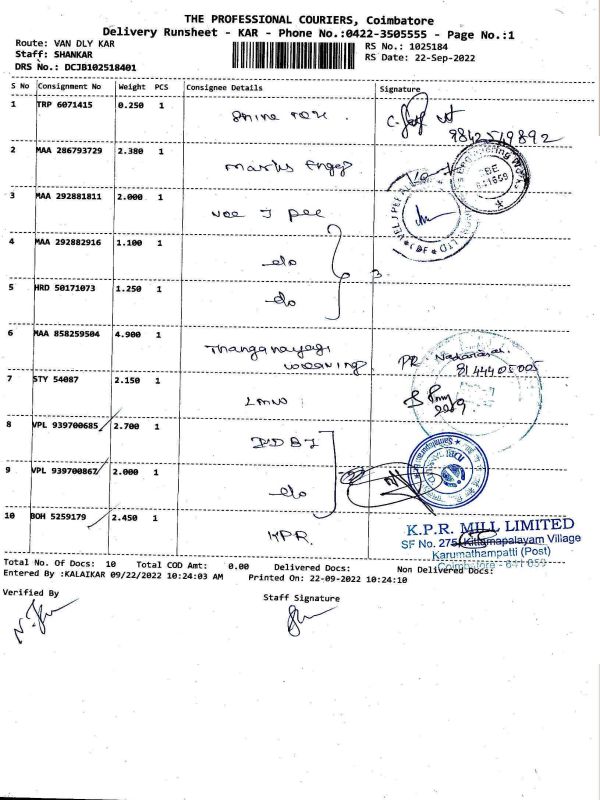 THE PROFESSIONAL COURIERS, Coimbatore
Delivery Runsheet - KAR - Phone No.:0422-3505555 - Page No.:1
Route: VAN DLY KAR
Staff: SHANKAR
DRS No.: DCJB102518401
RS No.: 1025184
RS Date: 22-Sep-2022
S No Consignment No Weight PCS Consignee Details Signature
1 TRP 6071415 0.250 1
9842549892
2 MAA 286793729 2.380 1
3 MAA 292881811 2.000 1 Vee J Pee
4 MAA 292882916 1.100 1 do
5 HRD 50171073 1.250 1 do
3
6 MAA 858259504 4.900 1 Thanganayagi
weaving
8144405005
7 STY 54087 2.150 1 LMW
8 VPL 939700685 2.700 1 IDBI
9 VPL 939700867 2.000 1 do
10 BOH 5259179 2.450 1 KPR
K.P.R. MILL LIMITED
SF No. 275, Kittampalayam Village
Karumathampatti (Post)
Coimbatore - 641 659
Total No. Of Docs: 10 Total COD Amt: 0.00 Delivered Docs: Non Delivered Docs:
Entered By :KALAIKAR 09/22/2022 10:24:03 AM Printed On: 22-09-2022 10:24:10
Verified By
Staff Signature